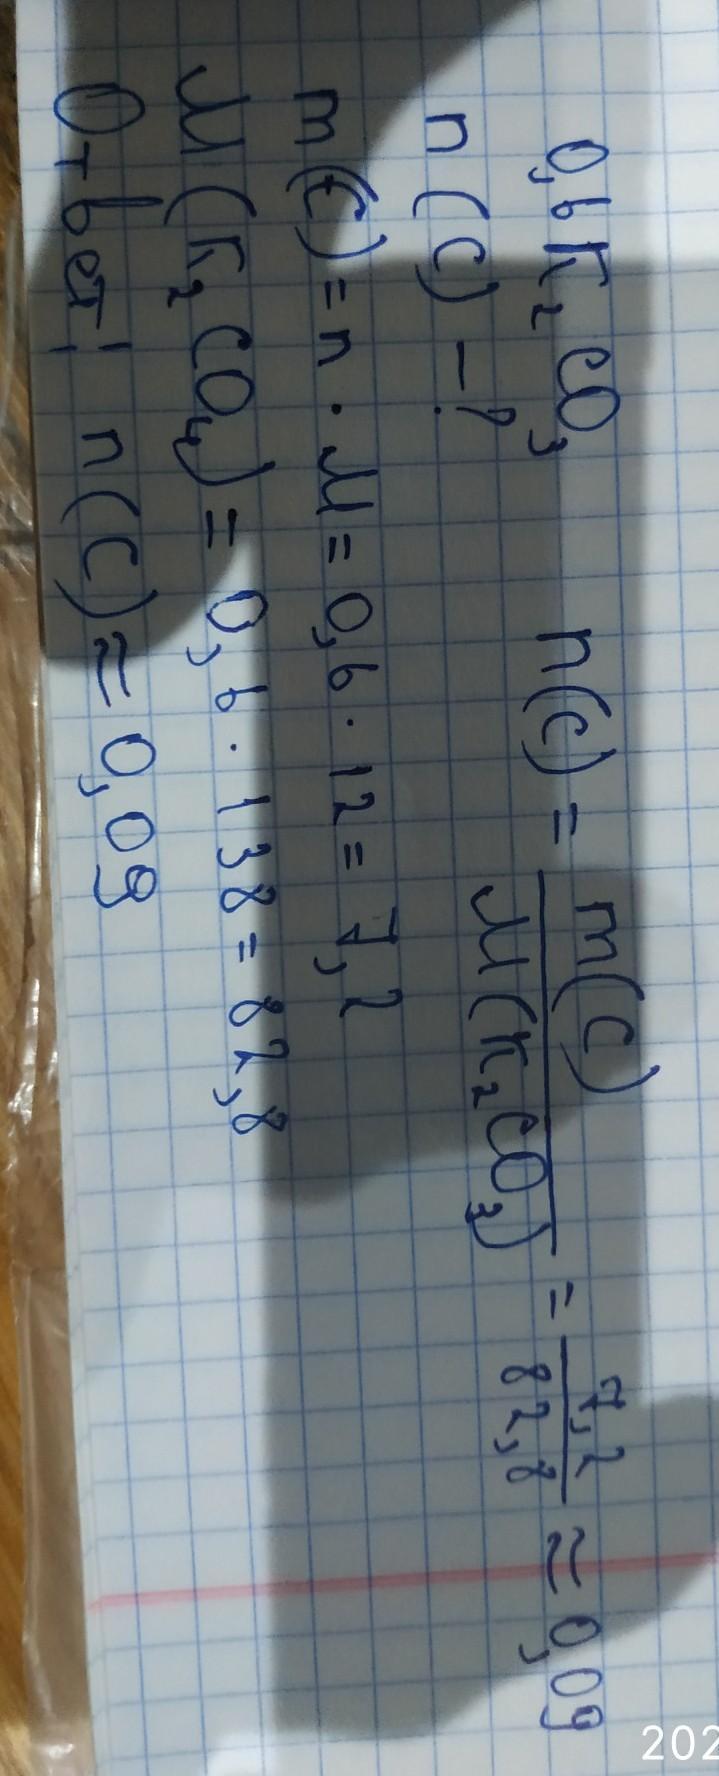 0,6 K₂CO₃
n(C) = m(C) / M(K₂CO₃) = 7,2 / 82,8 ≈ 0,09
n(C) – ?
m(C) = n · M = 0,6 · 12 = 7,2
M(K₂CO₄) = 0,6 · 138 = 82,8
Ответ: n(C) ≈ 0,09
202